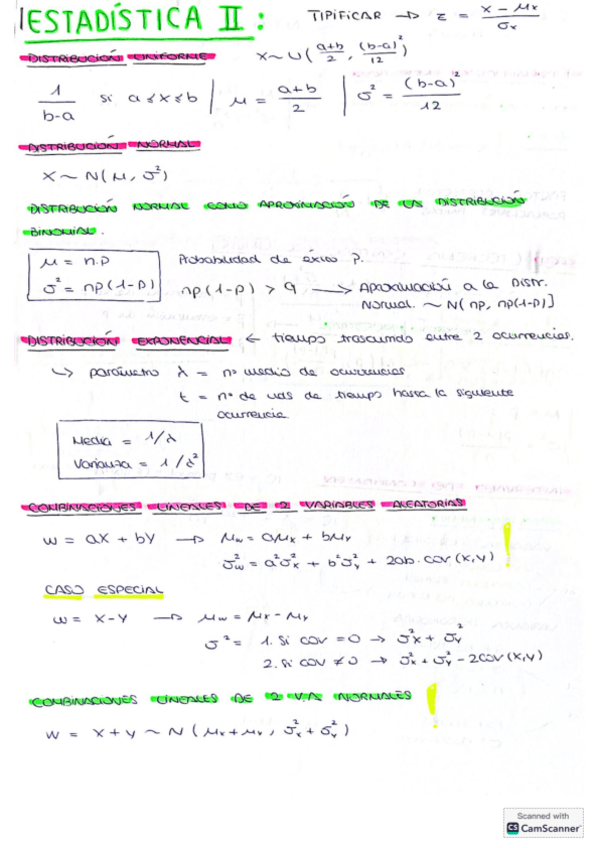 ESTADÍSTICA II :
TIPIFICAR → z = (x - μx) / σx
DISTRIBUCIÓN UNIFORME x ~ U( (a+b)/2 , (b-a)²/12 )
1/(b-a) si a ≤ x ≤ b | μ = (a+b)/2 | σ² = (b-a)²/12
DISTRIBUCIÓN NORMAL
X ~ N(μ, σ²)
DISTRIBUCIÓN NORMAL COMO APROXIMACIÓN DE LA DISTRIBUCIÓN
BINOMIAL.
μ = n.p Probabilidad de éxito P.
σ² = np(1-p) np(1-p) > 9 → Aproximación a la Distr.
Normal. ~ N( np, np(1-p)]
DISTRIBUCIÓN EXPONENCIAL ← tiempo trascurrido entre 2 ocurrencias.
↳ parámetro λ = nº medio de ocurrencias
t = nº de uds de tiempo hasta la siguiente
ocurrencia
Media = 1/λ
Varianza = 1/λ²
COMBINACIONES LINEALES DE 2 VARIABLES ALEATORIAS
W = aX + bY → μw = aμx + bμy !
σ²w = a²σ²x + b²σ²y + 2ab. cov, (x,y)
CASO ESPECIAL
W = X-Y → μw = μx - μy
σ² = 1. Si COV = 0 → σ²x + σ²y
2. Si COV ≠ 0 → σ²x + σ²y - 2COV (X,Y)
COMBINACIONES LINEALES DE 2 V.A. NORMALES !
W = X+Y ~ N ( μx+μy , σ²x + σ²y )
Scanned with
CS CamScanner